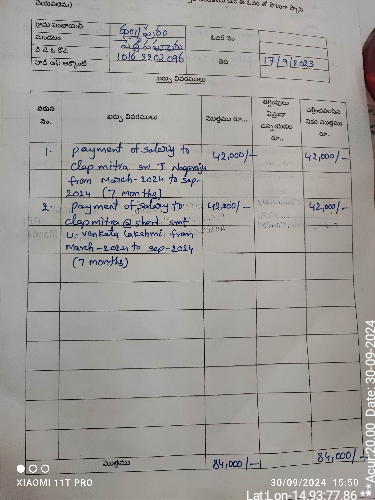 గ్రామ పంచాయతీ
మండలం
ఓచరు నం
డి డి ఓ కోడ్
10162202096
హెడ్ ఆఫ్ అకౌంట్
తేది 17/9/2023
ఖర్చు వివరములు
వరుస నం. ఖర్చు వివరములు మొత్తము రూ...
రూ..
1. payment of salary to 42,000/- 42,000/-
Clap mitra sri. T Nagaraju
from March-2024 to Sep-
2024 (7 months)
2. payment of salary to 42,000/- 42,000/-
clap mitra @ shed smt
U. Venkata Lakshmi from
March-2024 to sep-2024
(7 months)
మొత్తము 84,000/- 84,000/-
XIAOMI 11T PRO
30/09/2024 15:50
Lat:Lon-14.93:77.86
***Acu: 20.00 Date: 30-09-2024